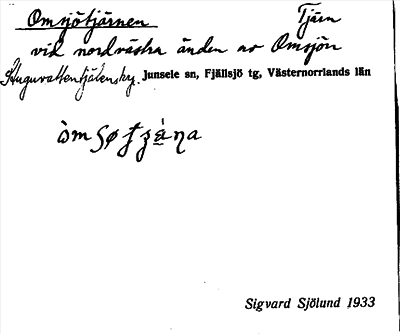 Omsjötjärnen Tjärn
vid nordvästra änden av Omsjön
Junsele sn, Fjällsjö tg, Västernorrlands län
Sigvard Sjölund 1933